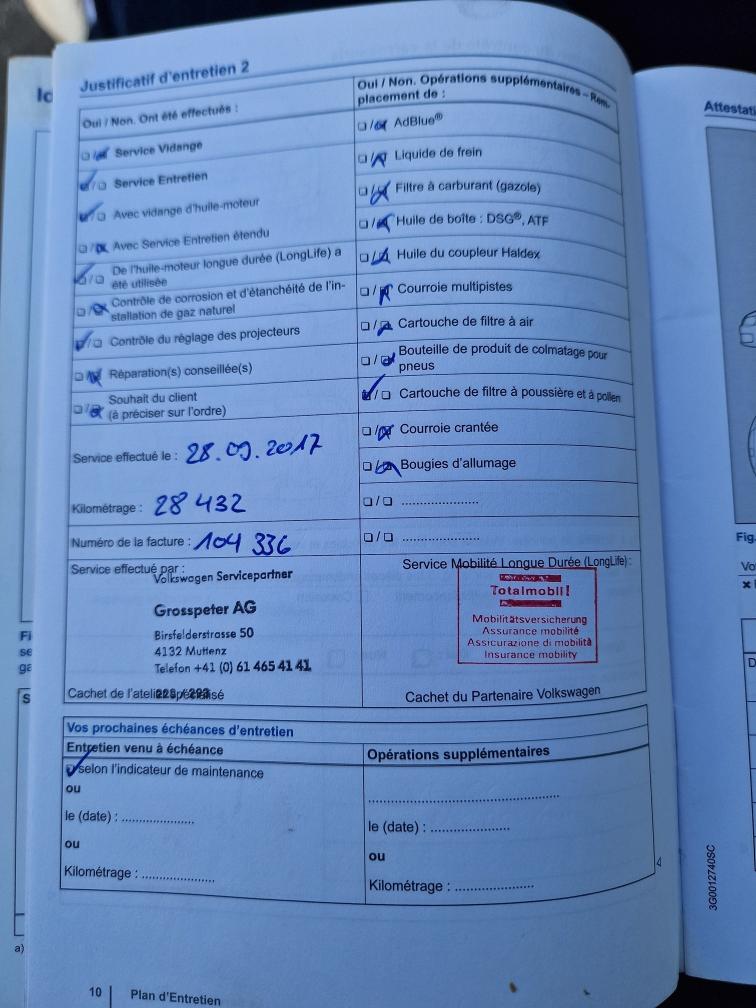 Justificatif d'entretien 2
Oui / Non. Ont été effectués :
☐/☒ Service Vidange
☑/☐ Service Entretien
☑/☐ Avec vidange d'huile-moteur
☐/☒ Avec Service Entretien étendu
☑/☐ De l'huile-moteur longue durée (LongLife) a
été utilisée
☐/☒ Contrôle de corrosion et d'étanchéité de l'in-
stallation de gaz naturel
☑/☐ Contrôle du réglage des projecteurs
☐/☒ Réparation(s) conseillée(s)
☐/☒ Souhait du client
(à préciser sur l'ordre)
Service effectué le : 28.09.2017
Kilométrage : 28 432
Numéro de la facture : 104 336
Service effectué par :
Volkswagen Servicepartner
Grosspeter AG
Birsfelderstrasse 50
4132 Muttenz
Telefon +41 (0) 61 465 41 41
Cachet de l'atelier spécialisé
Oui / Non. Opérations supplémentaires – Rem-
placement de :
☐/☒ AdBlue®
☐/☒ Liquide de frein
☐/☒ Filtre à carburant (gazole)
☐/☒ Huile de boîte : DSG®, ATF
☐/☒ Huile du coupleur Haldex
☐/☒ Courroie multipistes
☐/☒ Cartouche de filtre à air
☐/☒ Bouteille de produit de colmatage pour
pneus
☑/☐ Cartouche de filtre à poussière et à pollen
☐/☒ Courroie crantée
☐/☒ Bougies d'allumage
☐/☐ .....................
☐/☐ .....................
Service Mobilité Longue Durée (LongLife) :
Totalmobil!
Mobilitätsversicherung
Assurance mobilité
Assicurazione di mobilità
Insurance mobility
Cachet du Partenaire Volkswagen
Vos prochaines échéances d'entretien
Entretien venu à échéance
☑ selon l'indicateur de maintenance
ou
le (date) : ....................
ou
Kilométrage : ....................
Opérations supplémentaires
.....................................................
le (date) : ......................
ou
Kilométrage : ......................
10 Plan d'Entretien
3G0012740SC
Attestati
Fig.
Vo